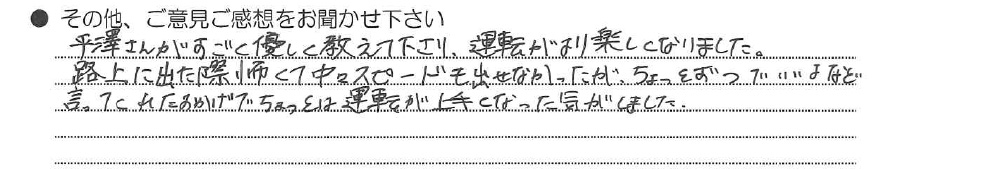 ● その他、ご意見ご感想をお聞かせ下さい
平澤さんがすごく優しく教えて下さり、運転がより楽しくなりました。
路上に出た際怖くて中々スピードを出せなかったが、ちょっとずつでいいよなど
言ってくれたおかげでちょっとは運転が上手くなった気がしました.